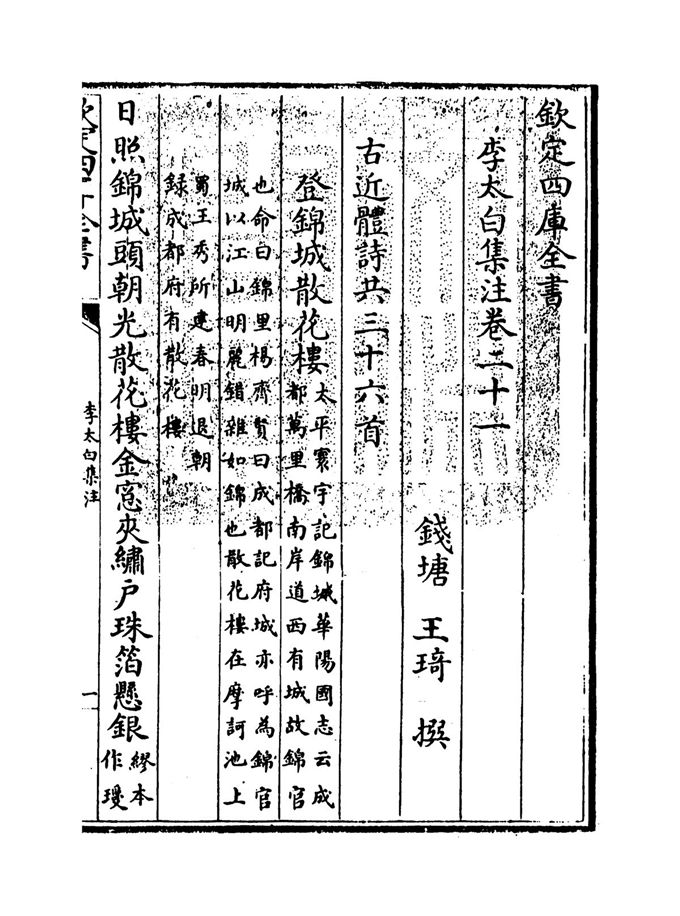 欽定四庫全書
李太白集注卷二十一
錢塘　王琦　撰
古近體詩共三十六首
登錦城散花樓
太平寰宇記錦城華陽國志云成
都萬里橋南岸道西有城故錦官
也命曰錦里楊齊賢曰成都記府城亦呼為錦官
城以江山明麗錯雜如錦也散花樓在摩訶池上
蜀王秀所建春明退朝
録成都府有散花樓
日照錦城頭朝光散花樓金窓夾繡户珠箔懸銀
繆本
作瓊
欽定四庫全書
李太白集注
一